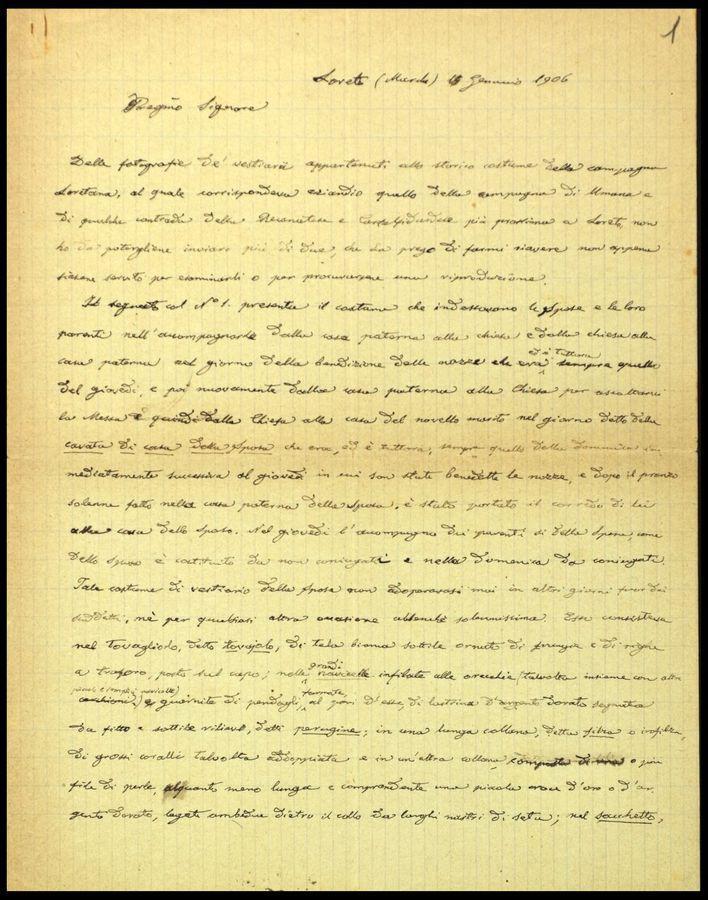 1
Loreto (Marche) 15 Gennaio 1906
Pregmo Signore
Delle fotografie de' vestiarii appartenuti allo storico costume della campagna
Loretana, al quale corrispondeva eziandio quello della campagna di Umana e
di qualche contrada della Recanatese e Castelfidardese più prossima a Loreto, non
ho da potergliene inviare più di due, che La prego di farmi riavere non appena
siasene servito per esaminarli o per procurarsene una riproduzione.
Il segnato col N° 1. presenta il costume che indossavano le Spose e le loro
parenti nell'accompagnarle dalla casa paterna alla chiesa e dalla chiesa alla
casa paterna nel giorno della benedizione delle nozze che era ed è tuttora sempre quello
del giovedì, e poi nuovamente dalla casa paterna alla Chiesa per ascoltarvi
la Messa e quindi dalla Chiesa alla casa del novello marito nel giorno detto della
cavata di casa della Sposa che era, ed è tuttora, sempre quello della domenica im
mediatamente successiva al giovedì in cui son state benedette le nozze, e dopo il pranzo
solenne fatto nella casa paterna della Sposa, è stato portato il corredo di lei
alla casa dello sposo. Nel giovedì l'accompagno dei parenti sì della Sposa come
dello sposo è costituito da non coniugati e nella domenica da coniugati.
Tale costume di vestiario della Sposa non adoperavasi mai in altri giorni fuor dei
suddetti, nè per qualsiasi altra occasione abbenchè solennissima. Esso consisteva
nel tovagliolo, detto tovajolo, di tela bianca sottile ornato di frangie e di righe
a traforo, posto sul capo; nelle grandi navicelle infilate alle orecchie (talvolta insieme con altre
piccole e semplici navicelle) e guarnite di pendagli, formate, al pari d'esse, di lastrina d'argento dorato segnata
da fitto e sottile rilievo, detti perugine; in una lunga collana, detta filza o infilza,
di grossi coralli talvolta addoppiata e in un'altra collana, o più
file di perle, alquanto meno lunga e comprendente una piccola croce d'oro o d'ar,
gento dorato, legate ambedue dietro il collo da lunghi nastri di seta; nel sacchetto,